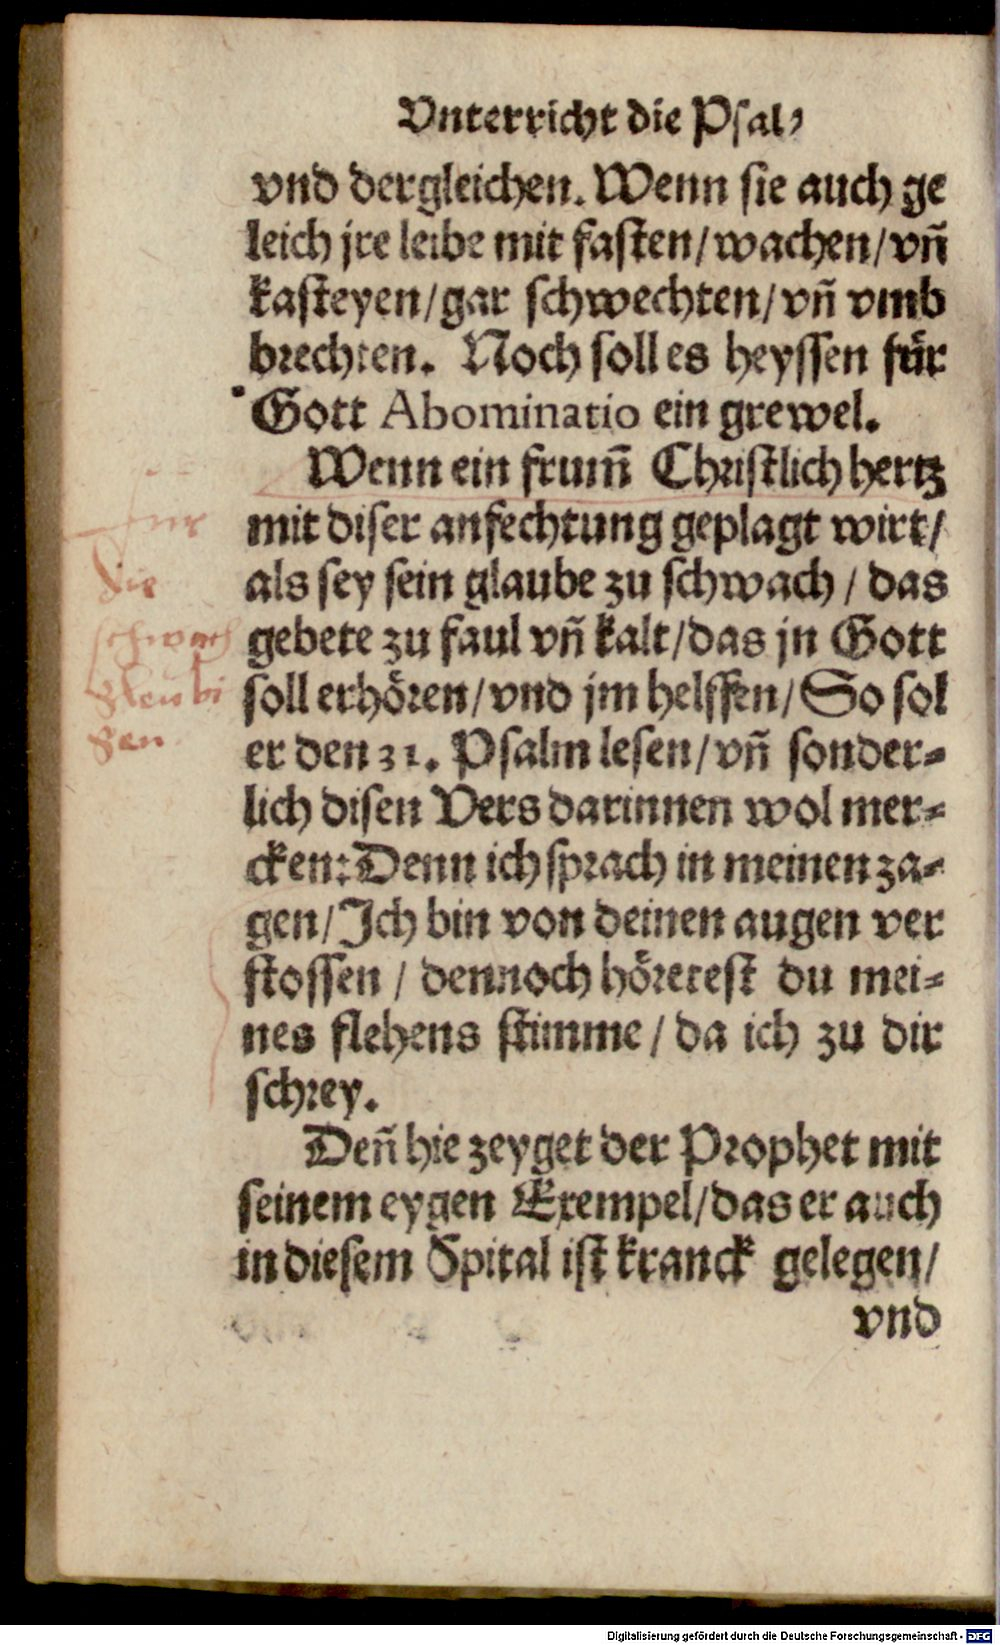 Vnterricht die Psal,
vnd dergleichen. Wenn sie auch ge
leich jre leibe mit fasten/wachen/vñ
kasteyen/gar schwechten/vñ vmb
brechten. Noch soll es heyssen für
Gott Abominatio ein grewel.
Wenn ein frum̃ Christlich hertz
mit diser anfechtung geplagt wirt/
als sey sein glaube zu schwach / das
gebete zu faul vñ kalt/das jn Gott
soll erhören/vnd jm helffen/So sol
er den 31. Psalm lesen/vñ sonder-
lich disen Vers darinnen wol mer-
cken: Denn ich sprach in meinen za-
gen/Ich bin von deinen augen ver
stossen / dennoch höretest du mei-
nes flehens stimme / da ich zu dir
schrey.
Deñ hie zeyget der Prophet mit
seinem eygen Exempel/das er auch
in diesem Spital ist kranck gelegen/
vnd
fur
die
schwach
gleubi
gen.
Digitalisierung gefördert durch die Deutsche Forschungsgemeinschaft - DFG